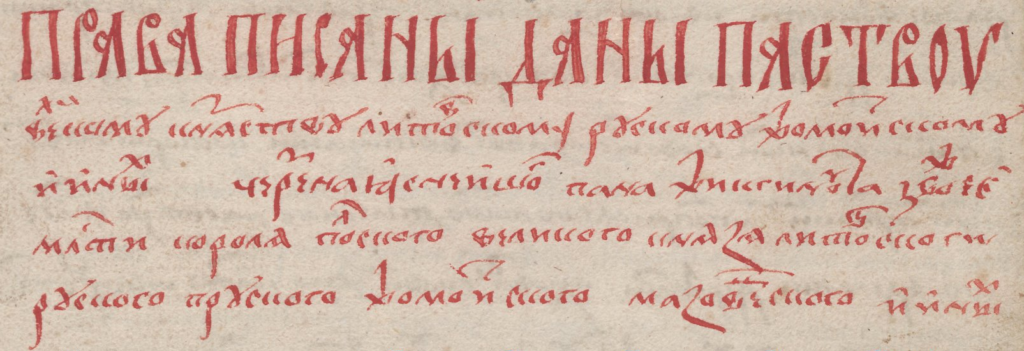 ПРАВА ПИСАНЫ ДАНЫ ПАСТВОУ
великомꙋ кнѧзствꙋ литовскомꙋ рꙋскомꙋ жомоитскомꙋ
и иныхъ через наѧснейшого пана жикгимонта з божее
млсти королѧ полского великого кнѧзѧ литовского и
рꙋского прꙋского жомоитского мазовецкого и иныхъ